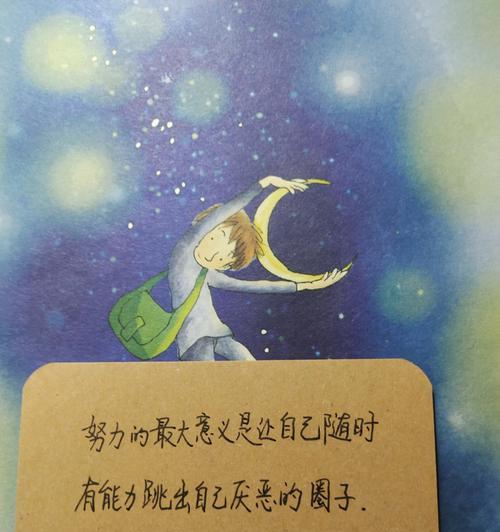 努力的最大意义是让自己随时
有能力跳出自己厌恶的圈子.